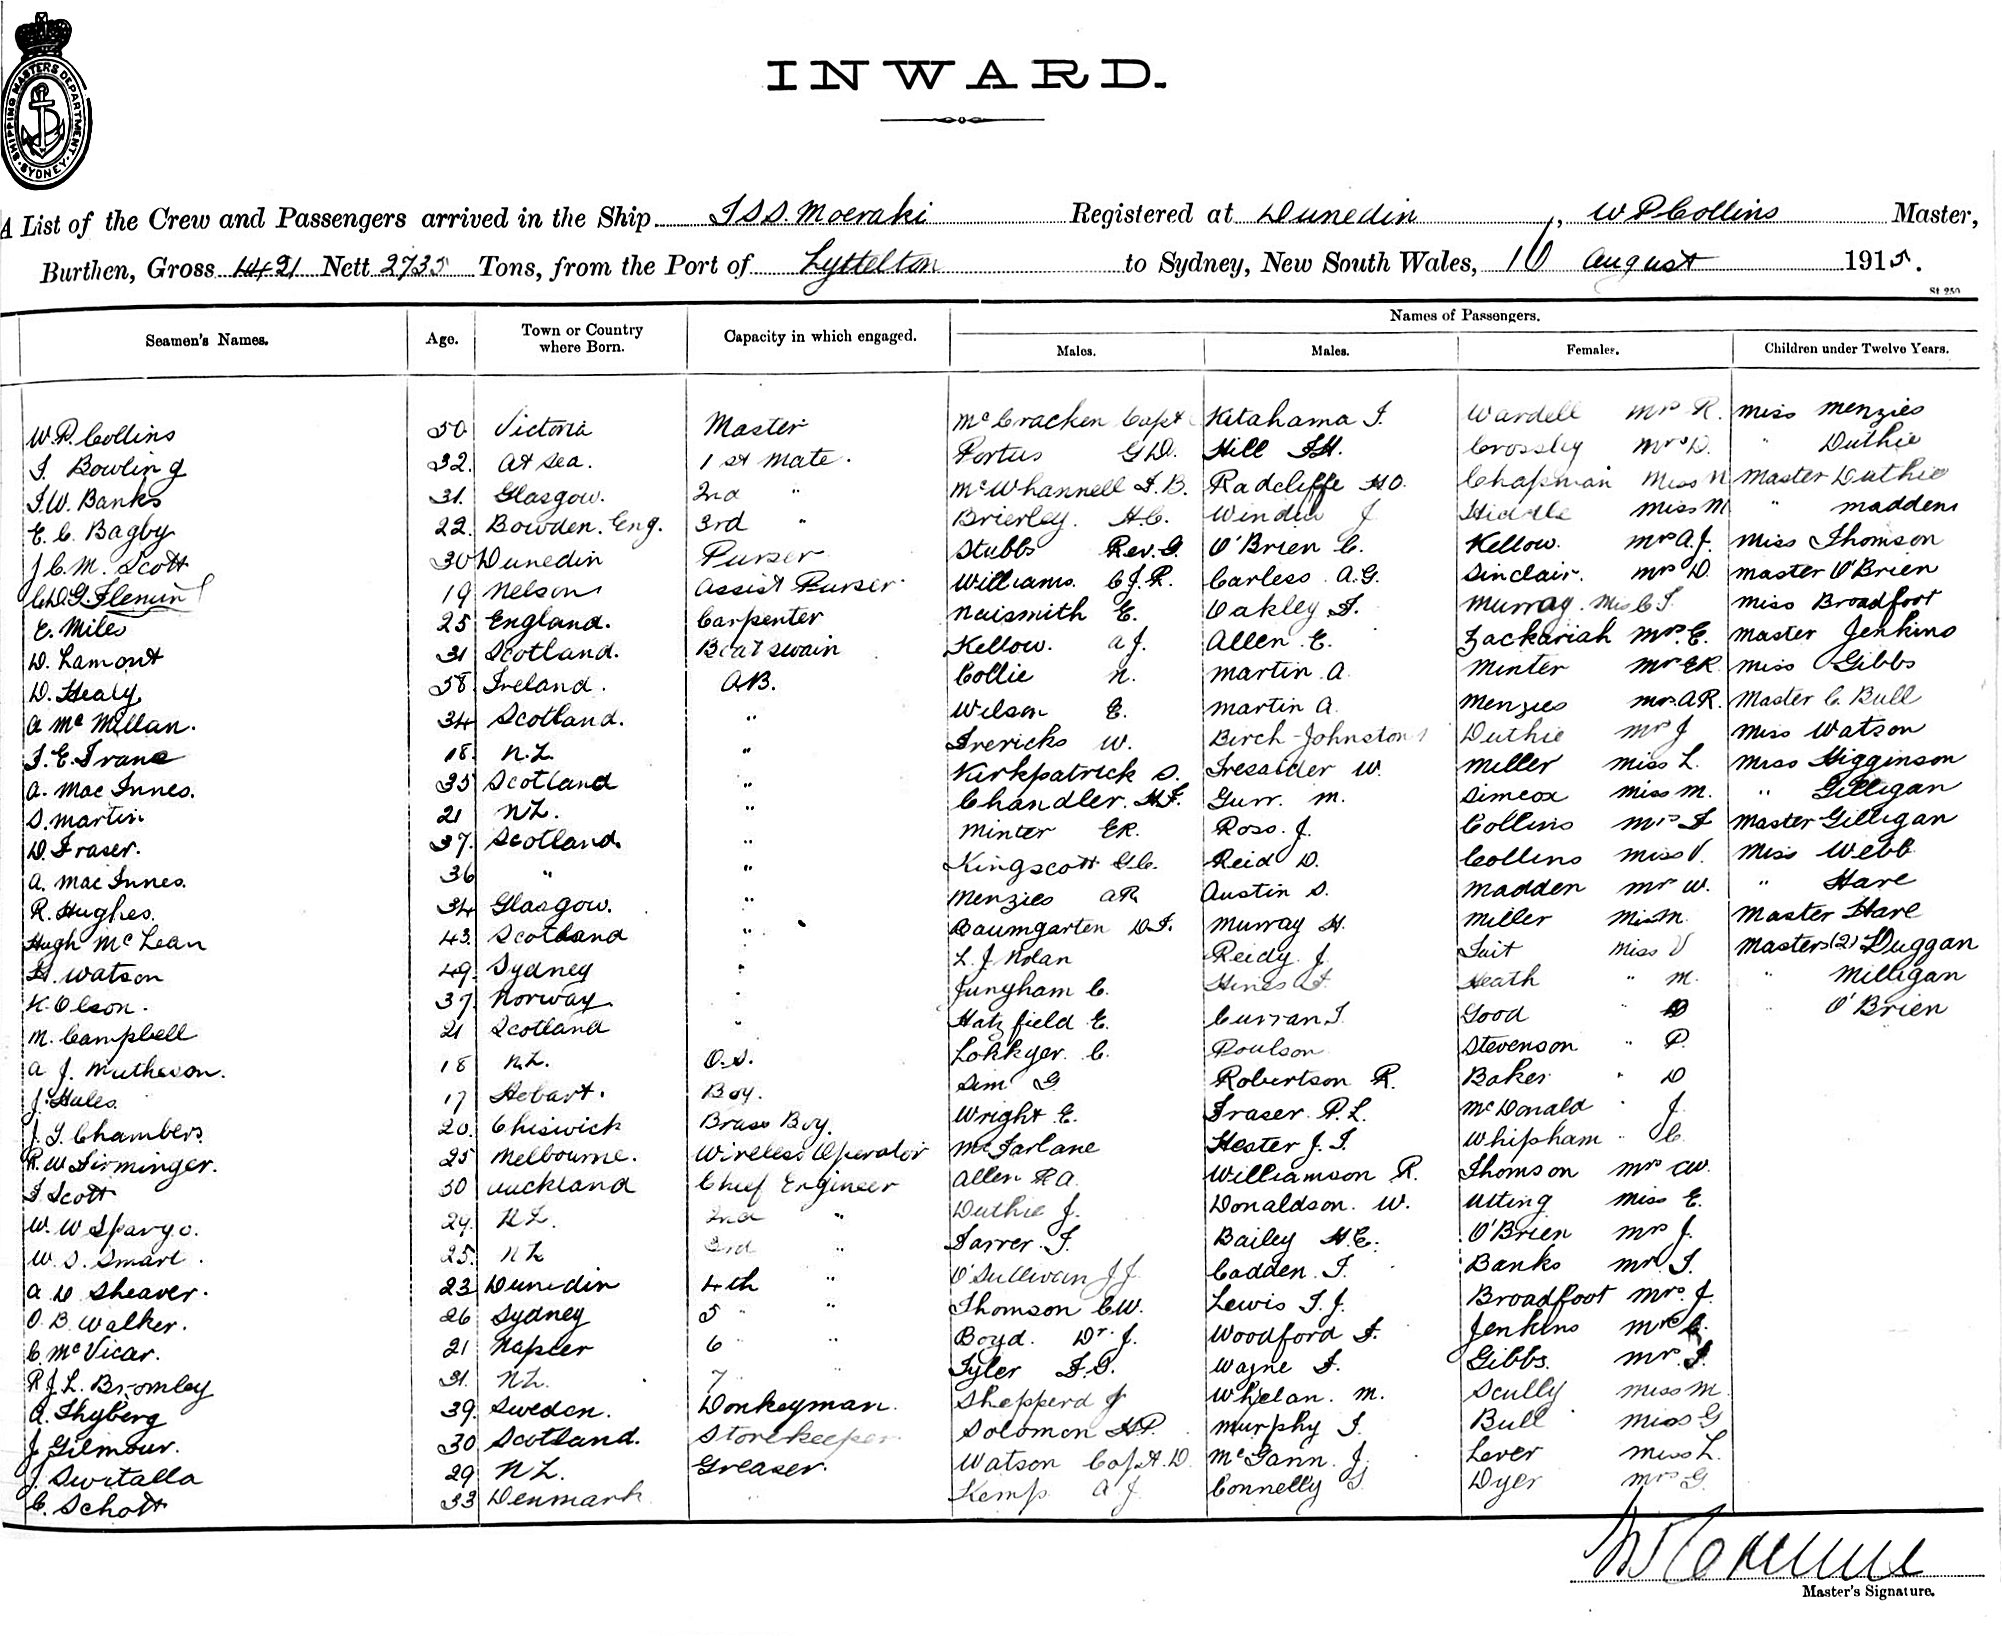 SHIPPING MASTERS DEPARTMENT
SYDNEY
INWARD.
A List of the Crew and Passengers arrived in the Ship T.S.S. Moeraki Registered at Dunedin, W P Collins Master,
Burthen, Gross 4421 Nett 2735 Tons, from the Port of Lyttelton to Sydney, New South Wales, 10 August 1915.
St 250
Names of Passengers.
Seamen's Names. Age. Town or Country where Born. Capacity in which engaged. Males. Males. Females. Children under Twelve Years.
W.P. Collins 50 Victoria Master McCracken Capt Kitahama T. Wardell Mrs R. Miss Menzies
T. Bowling 32. At Sea. 1st Mate. Portus G.D. Hill F.H. Crossley Mrs D. " Duthie
F.W. Banks 31. Glasgow. 2nd " McWhannell F.B. Radcliffe H.O. Chapman Miss N Master Duthie
E.C. Bagby 22. Bowden. Eng. 3rd " Brierley. H.C. J Hiddle Miss M " Maddens
J.C.M. Scott 30 Dunedin Purser Stubbs Rev. G. O'Brien C. Kellow. Mrs A.J. Miss Thomson
C.D.G. Fleming 19 Nelson Assist Purser Williams. C.J.R. Carless A.G. Sinclair. Mrs D. Master O'Brien
E. Miles 25 England. Carpenter Naismith E. Oakley F. Murray. Miss C.F. Miss Broadfoot
D. Lamont 31 Scotland. Boatswain Kellow. A.J. Allen E. Zackariah Mrs. E. Master Jenkins
D. Healy 58 Ireland. A.B. Collie N. Martin A. Minter Mrs E.R. Miss Gibbs
A McMillan. 34 Scotland. " Wilson E. Martin A. Menzies Mrs. A.R. Master C. Bull
18. N.Z. " Frericks W. Birch-Johnston Duthie Mrs J Miss Watson
A. MacInnes. 35 Scotland " Kirkpatrick S. W. Miller Miss L. Miss Higginson
S. Martin 21 N.Z. " Chandler. H.F. Gurr. M. Simcox Miss M. " Gilligan
D. Fraser. 37. Scotland. " Minter E.R. Ross. J. Collins Mrs F Master Gilligan
A. MacInnes. 36 " " Kingscott G.C. Reid D. Collins Miss V. Miss Webb
R. Hughes. 34 Glasgow. " Menzies A.R. Austin S. Madden Mrs W. " Hare
Hugh McLean 43. Scotland " Baumgarten D.F. Murray H. Miller Miss M. Master Hare
H. Watson 49. Sydney " L.J. Nolan Reidy. J. Tait Miss V Masters (2) Duggan
K. Olson. 37. Norway. " Jungham C. Hines Heath " M. " Milligan
M. Campbell 21 Scotland " Hatzfield E. Curran T. Good " D " O'Brien
A J. Matheson. 18 N.Z. O.S. Lokkyer. C. Poulson Stevenson " P.
J. Hales. 17 Hobart. Boy. Sim G Robertson R. Baker " D
J.T. Chambers. 20. Chiswick Brass Boy. Wright E. Fraser. P.L. McDonald " J.
R.W. Firminger. 25 Melbourne. Wireless Operator McFarlane Hester J.T. Whipham " C.
F Scott 50 Auckland Chief Engineer Allen R.A. Williamson R. Thomson Mrs C.W.
W.W. Spargo. 29. N.Z. 2nd " Duthie J. Donaldson. W. Utting Miss E.
W.S. Smart. 25. N.Z. 3rd " Farrer. F. Bailey H.E. O'Brien Mrs J.
A D Sheaver. 23 Dunedin 4th " O'Sullivan J.J. Cadden. T. Banks Mrs T.
O.B. Walker. 26 Sydney 5 " Thomson C.W. Lewis T.J. Broadfoot Mrs. J.
C. McVicar. 21 Napier 6 " Boyd. Dr. J. Woodford F. Jenkins Mrs C.
R.J.L. Bromley 31. N.Z. 7 " Tyler F.G. Wayne F. Gibbs. Mrs. F.
A. Thyberg 39. Sweden. Donkeyman. Shepperd J Whelan. M. Scully Miss M
J Gilmour. 30 Scotland. Storekeeper. Solomon H.P. Murphy T. Bull Miss G
J. Switalla 29 N.Z. Greaser. Watson Capt. D. McGann. J. Lever Miss L.
C. Schott 33 Denmark " Kemp A J. Connelly T Dyer Mrs G.
Master's Signature.